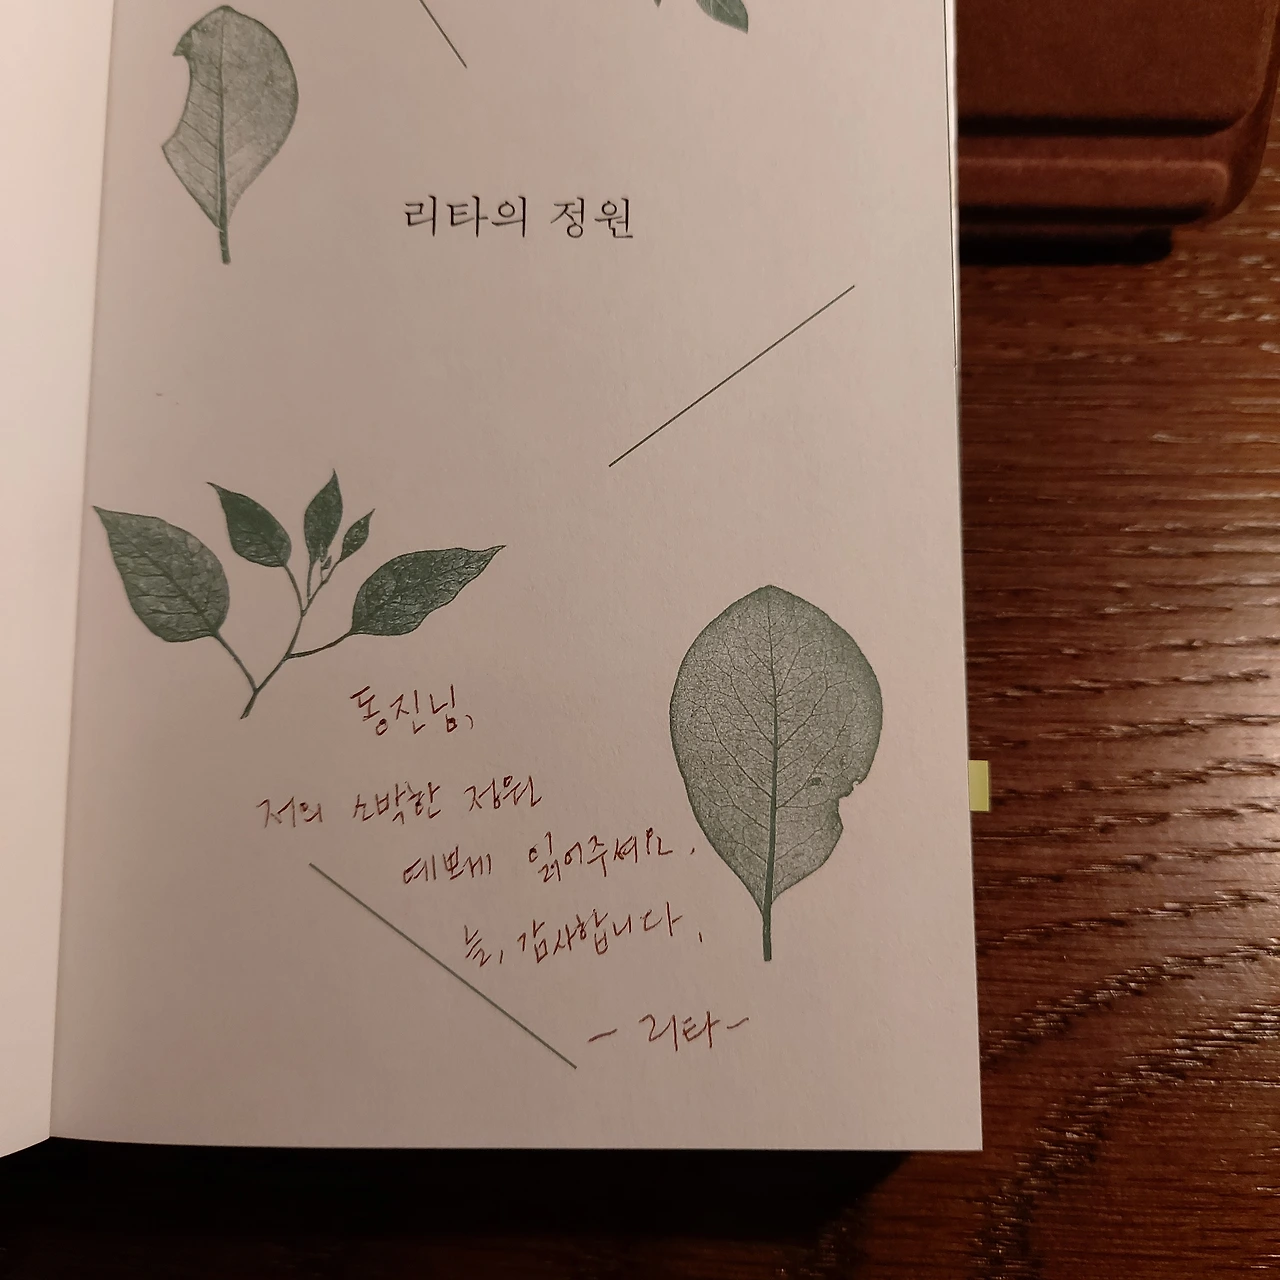 리타의 정원
동진님,
저의 소박한 정원
예쁘게 읽어주세요.
늘, 감사합니다.
- 리타 -